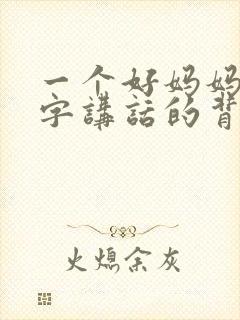 一个好妈妈
字講話的背
火熄余灰